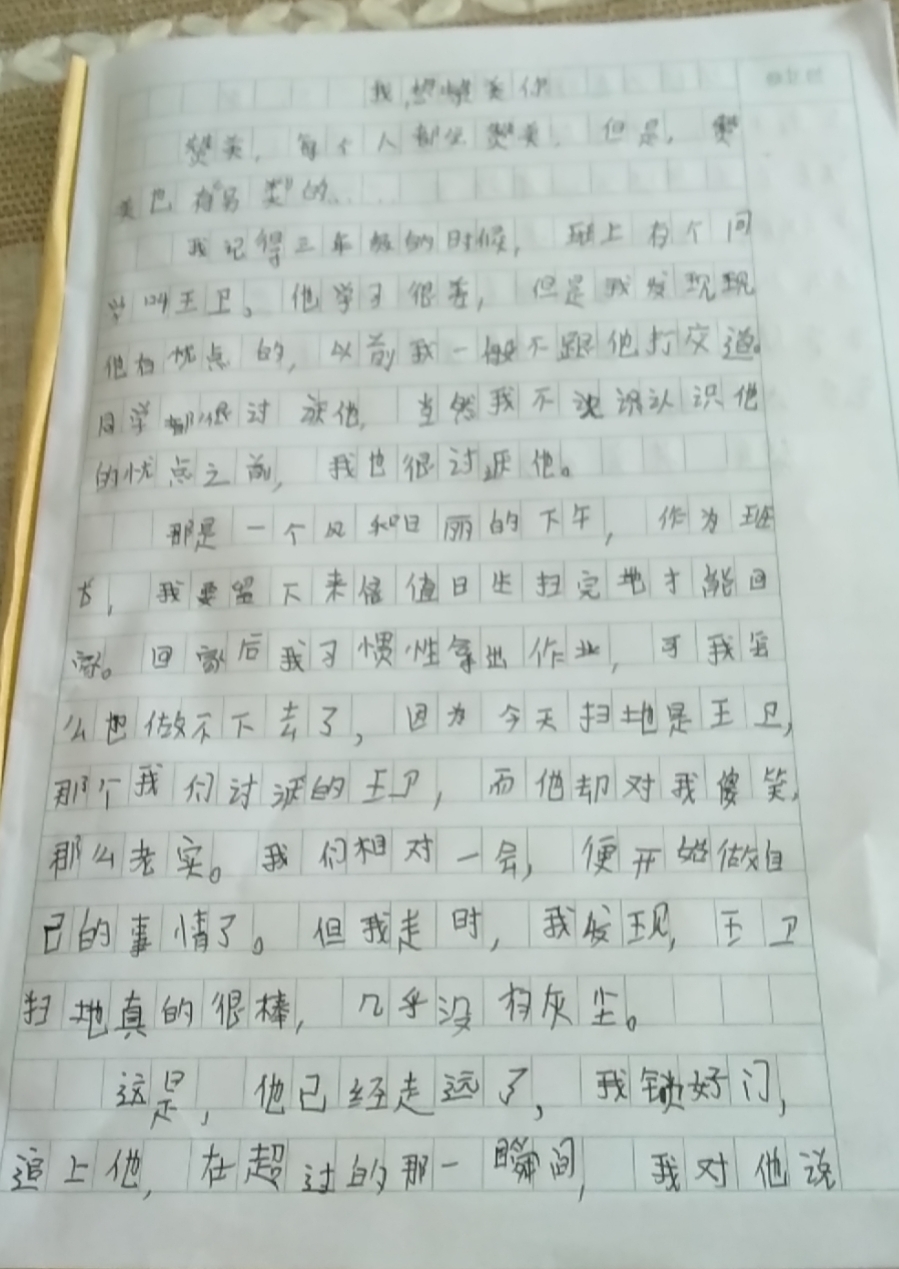 我想赞美你
赞美，每个人都会赞美，但是，赞
美也有另类的……
我记得三年级的时候，班上有个同
学叫王卫。他学习很差，但是我发现现
他有忧点的，以前我一般不跟他打交道。
同学都很讨厌他，当然我不没认识他
的忧点之前，我也很讨厌他。
那是一个风和日丽的下午，作为班
长，我要留下来值日生扫完地才能回
家。回家后我习惯性拿出作业，可我怎
么也做不下去了，因为今天扫地是王卫，
那个我们讨厌的王卫，而他却对我傻笑，
那么老实。我们相对一会，便开始做自
己的事情了。但我走时，我发现，王卫
扫地真的很棒，几乎没有灰尘。
这是，他已经走远了，我锁好门，
追上他，在超过的那一瞬间，我对他说